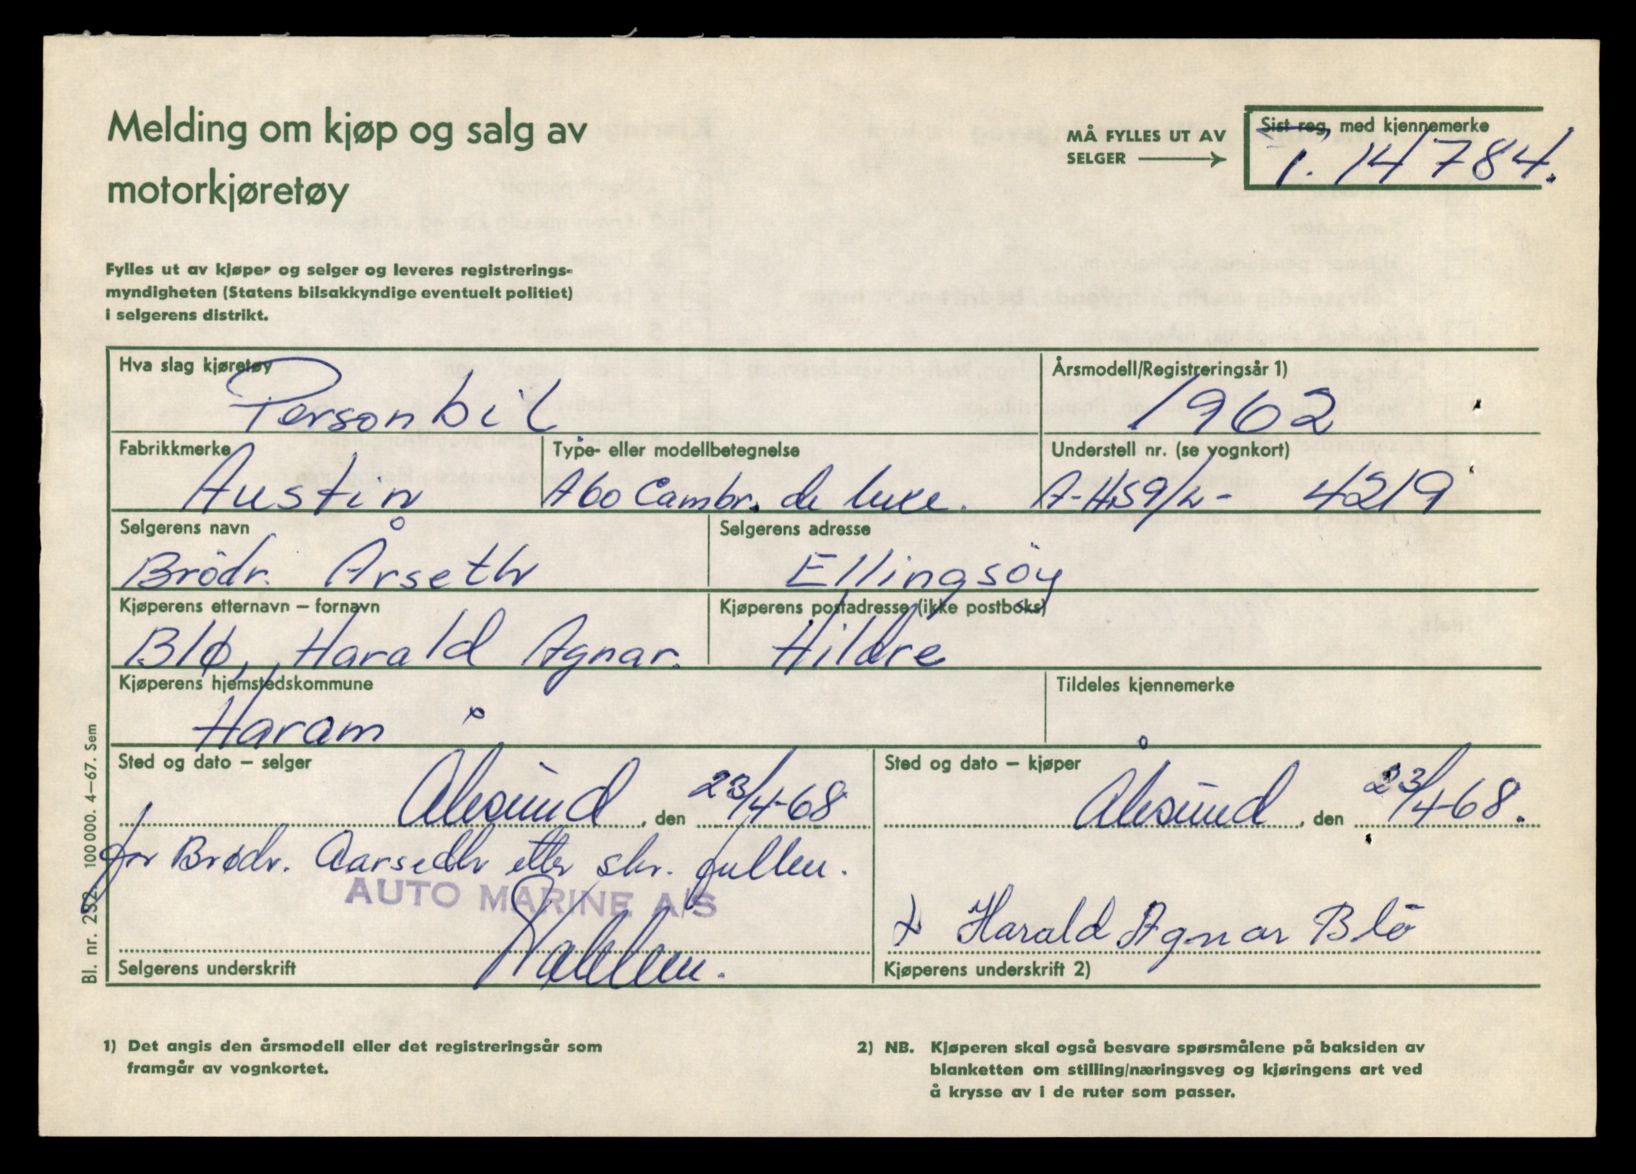 Melding om kjøp og salg av
motorkjøretøy
MÅ FYLLES UT AV
SELGER
Sist reg. med kjennemerke
T. 14784.
Fylles ut av kjøper og selger og leveres registrerings-
myndigheten (Statens bilsakkyndige eventuelt politiet)
i selgerens distrikt.
Hva slag kjøretøy
Personbil
Årsmodell/Registreringsår 1)
1962
Fabrikkmerke
Austin
Type- eller modellbetegnelse
A60 Cambr. de luxe.
Understell nr. (se vognkort)
A-HS9/L- 4219
Selgerens navn
Brödr. Årseth
Selgerens adresse
Ellingsöy
Kjøperens etternavn – fornavn
Blø, Harald Agnar.
Kjøperens postadresse (ikke postboks)
Hildre
Kjøperens hjemstedskommune
Haram
Tildeles kjennemerke
Sted og dato – selger
Ålesund, den 23/4-68
for Brødr. Aarseth etter skr. fullm.
AUTO MARINE A/S
Selgerens underskrift
Sted og dato – kjøper
Ålesund, den 23/4-68.
x Harald Agnar Blö
Kjøperens underskrift 2)
Bl. nr. 252 100 000. 4–67. Sem
1) Det angis den årsmodell eller det registreringsår som
framgår av vognkortet.
2) NB. Kjøperen skal også besvare spørsmålene på baksiden av
blanketten om stilling/næringsveg og kjøringens art ved
å krysse av i de ruter som passer.